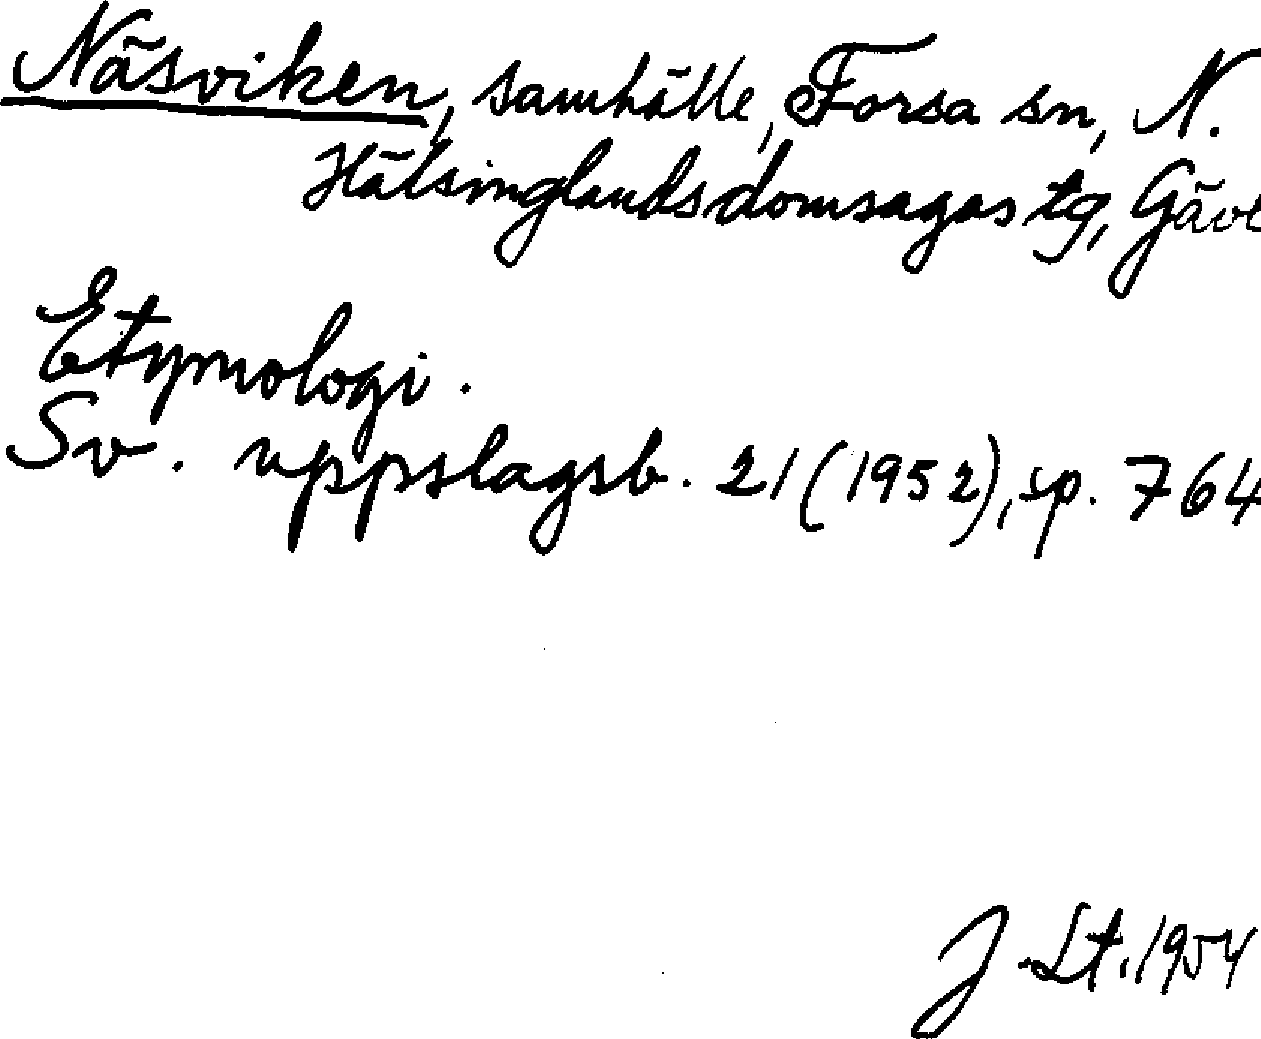 Näsviken, samhälle, Forsa sn, N.
Hälsinglandsdomsagas tg, Gävl
Etymologi.
Sv. uppslagsb. 21 (1952), sp. 764
J. Lt. 1954